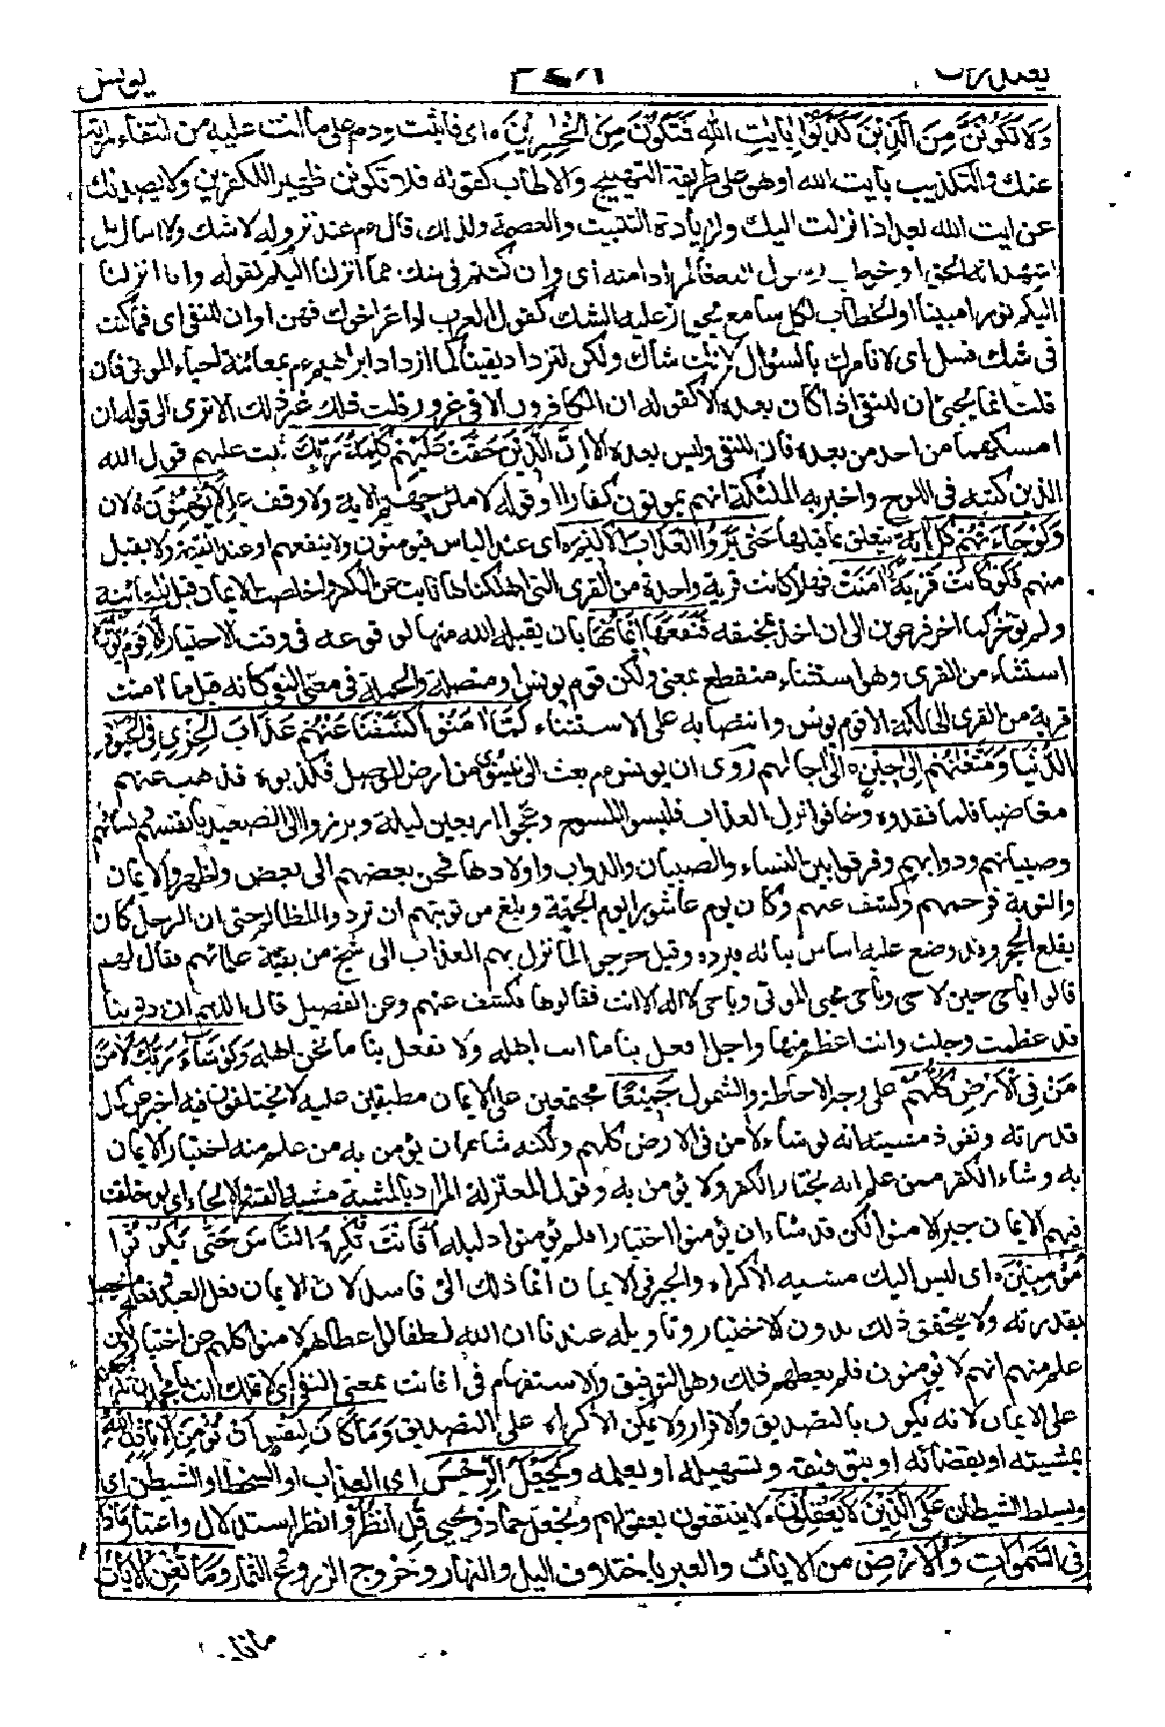 يونس
ولا تكونن من الذين كذبوا بايت الله فتكون من الخسرين ه اى فاثبت ودم على ما انت عليه من انتفاء المرية
عنك والتكذيب بايت الله او هو على طريقة التهييج والالهاب كقوله فلا تكونن ظهيرا للكفرين ولا يصدنك
عن ايت الله بعد اذ انزلت اليك ولزيادة التثبيت والعصمة ولذلك قال ءم عند نزوله لا اشك ولا اسال بل
اشهد انه الحق او خوطب رسول الله صلعم والمراد امته اى وان كنتم فى شك مما انزلنا اليكم لقوله وانا انزلنا
اليكم نورا مبينا او الخطاب لكل سامع يجوز عليه الشك كقول العرب اذا عز اخوك فهن او ان للنفى اى فما كنت
فى شك فسل اى لا نامرك بالسؤال لانك شاك ولكن لتزداد يقينا كما ازداد ابرهيم ءم بمعائنة احياء الموتى فان
قلت انما يجئ ان للنفى اذا كان بعده الا كقوله ان الكافرون الا فى غرور قلت ذلك غير لازم الا ترى الى قوله ان
امسكهما من احد من بعده فان للنفى وليس بعده الا ان الذين حقت عليهم كلمة ربك ثبت عليهم قول الله
الذى كتبه فى اللوح واخبر به الملئكة انهم يموتون كفارا او قوله لاملئن جهنم الاية ولا وقف على لا يؤمنون ه لان
ولو جاءتهم كل اية تتعلق بما قبلها حتى يروا العذاب الاليم ه اى عند الياس فيؤمنون ولا ينفعهم او عند القيمة ولا يقبل
منهم فلولا كانت قرية امنت فهلا كانت قرية واحدة من القرى التى اهلكناها تابت عن الكفر واخلصت الايمان قبل المعاينة
ولم تؤخر كما اخر فرعون الى ان اخذ بمخنقه فنفعها ايمانها بان يقبله الله منها لو قوعه فى وقت الاختيار الا قوم يونس
استثناء من القرى وهو استثناء منقطع بمعنى ولكن قوم يونس او متصلة والجملة فى معنى النفى كانه قيل ما امنت
قرية من القرى الهالكة الا قوم يونس وانتصابه على الاستثناء لما امنوا كشفنا عنهم عذاب الخزى فى الحيوة
الدنيا ومتعنهم الى حين ه الى اجالهم روى ان يونس ءم بعث الى نينوى من ارض الموصل فكذبوه فذهب عنهم
مغاضبا فلما فقدوه وخافوا نزول العذاب فلبسوا المسوح وعجوا اربعين ليلة وبرزوا الى الصعيد بانفسهم ونسائهم
وصبيانهم ودوابهم وفرقوا بين النساء والصبيان والدواب واولادها فحن بعضهم الى بعض واظهروا الايمان
والتوبة فرحمهم وكشف عنهم وكان يوم عاشورا يوم الجمعة وبلغ من توبتهم ان تردوا المظالم حتى ان الرجل كان
يقلع الحجر وقد وضع عليه اساس بنائه فيرده وقيل خرجوا لما نزل بهم العذاب الى شيخ من بقية علمائهم فقال لهم
قالوا ياحى حين لا حى وياحى محيى الموتى وياحى لا اله الا انت فقالوها فكشف عنهم وعن الفضيل قال اللهم ان ذنوبنا
قد عظمت وجلت وانت اعظم منها واجل افعل بنا ما انت اهله ولا تفعل بنا ما نحن اهله ولو شاء ربك لامن
من فى الارض كلهم على وجه الاحاطة والشمول جميعا مجتمعين على الايمان مطبقين عليه لا يختلفون فيه اخبر عن كمال
قدرته ونفوذ مشيته انه لو شاء لامن من فى الارض كلهم ولكنه شاء ان يؤمن به من علم منه اختيار الايمان
به وشاء الكفر ممن علم انه يختار الكفر ولا يؤمن به وقول المعتزلة المراد بالمشية مشية القسر والالجاء اى لو خلقت
فيهم الايمان جبرا لامنوا لكن قد شاء ان يؤمنوا اختيارا فلم يؤمنوا دليله افانت تكره الناس حتى يكونوا
مؤمنين ه اى ليس اليك مشيه الاكراه والجبر فى الايمان انما ذلك الى فاسد لان الايمان فعل العبد وفعله ما يحصل
بقدرته ولا يتحقق ذلك بدون الاختيار وتاويله عندنا ان الله لطفا لو اعطاهم لامنوا كلهم عن اختيار ولكن
علم منهم انهم لا يؤمنون فلم يعطهم ذلك وهو التوفيق والاستفهام فى افانت بمعنى النفى اى لا تملك انت يا محمد ان تكرههم
على الايمان لانه يكون بالتصديق والاقرار ولا يمكن الاكراه على التصديق وما كان لنفس ان تؤمن الا باذن الله
بمشيته او بقضائه او بتوفيقه وتسهيله او بعلمه ويجعل الرجس اى العذاب او السخط او الشيطن اى
ويسلط الشيطان على الذين لا يعقلون ه لا ينتفعون بعقولهم ونجعل حماد ويحيى قل انظروا نظر استدلال واعتبار ماذا
فى السموات والارض من الايات والعبر باختلاف اليل والنهار وخروج الزروع والثمار وما تغنى الايات